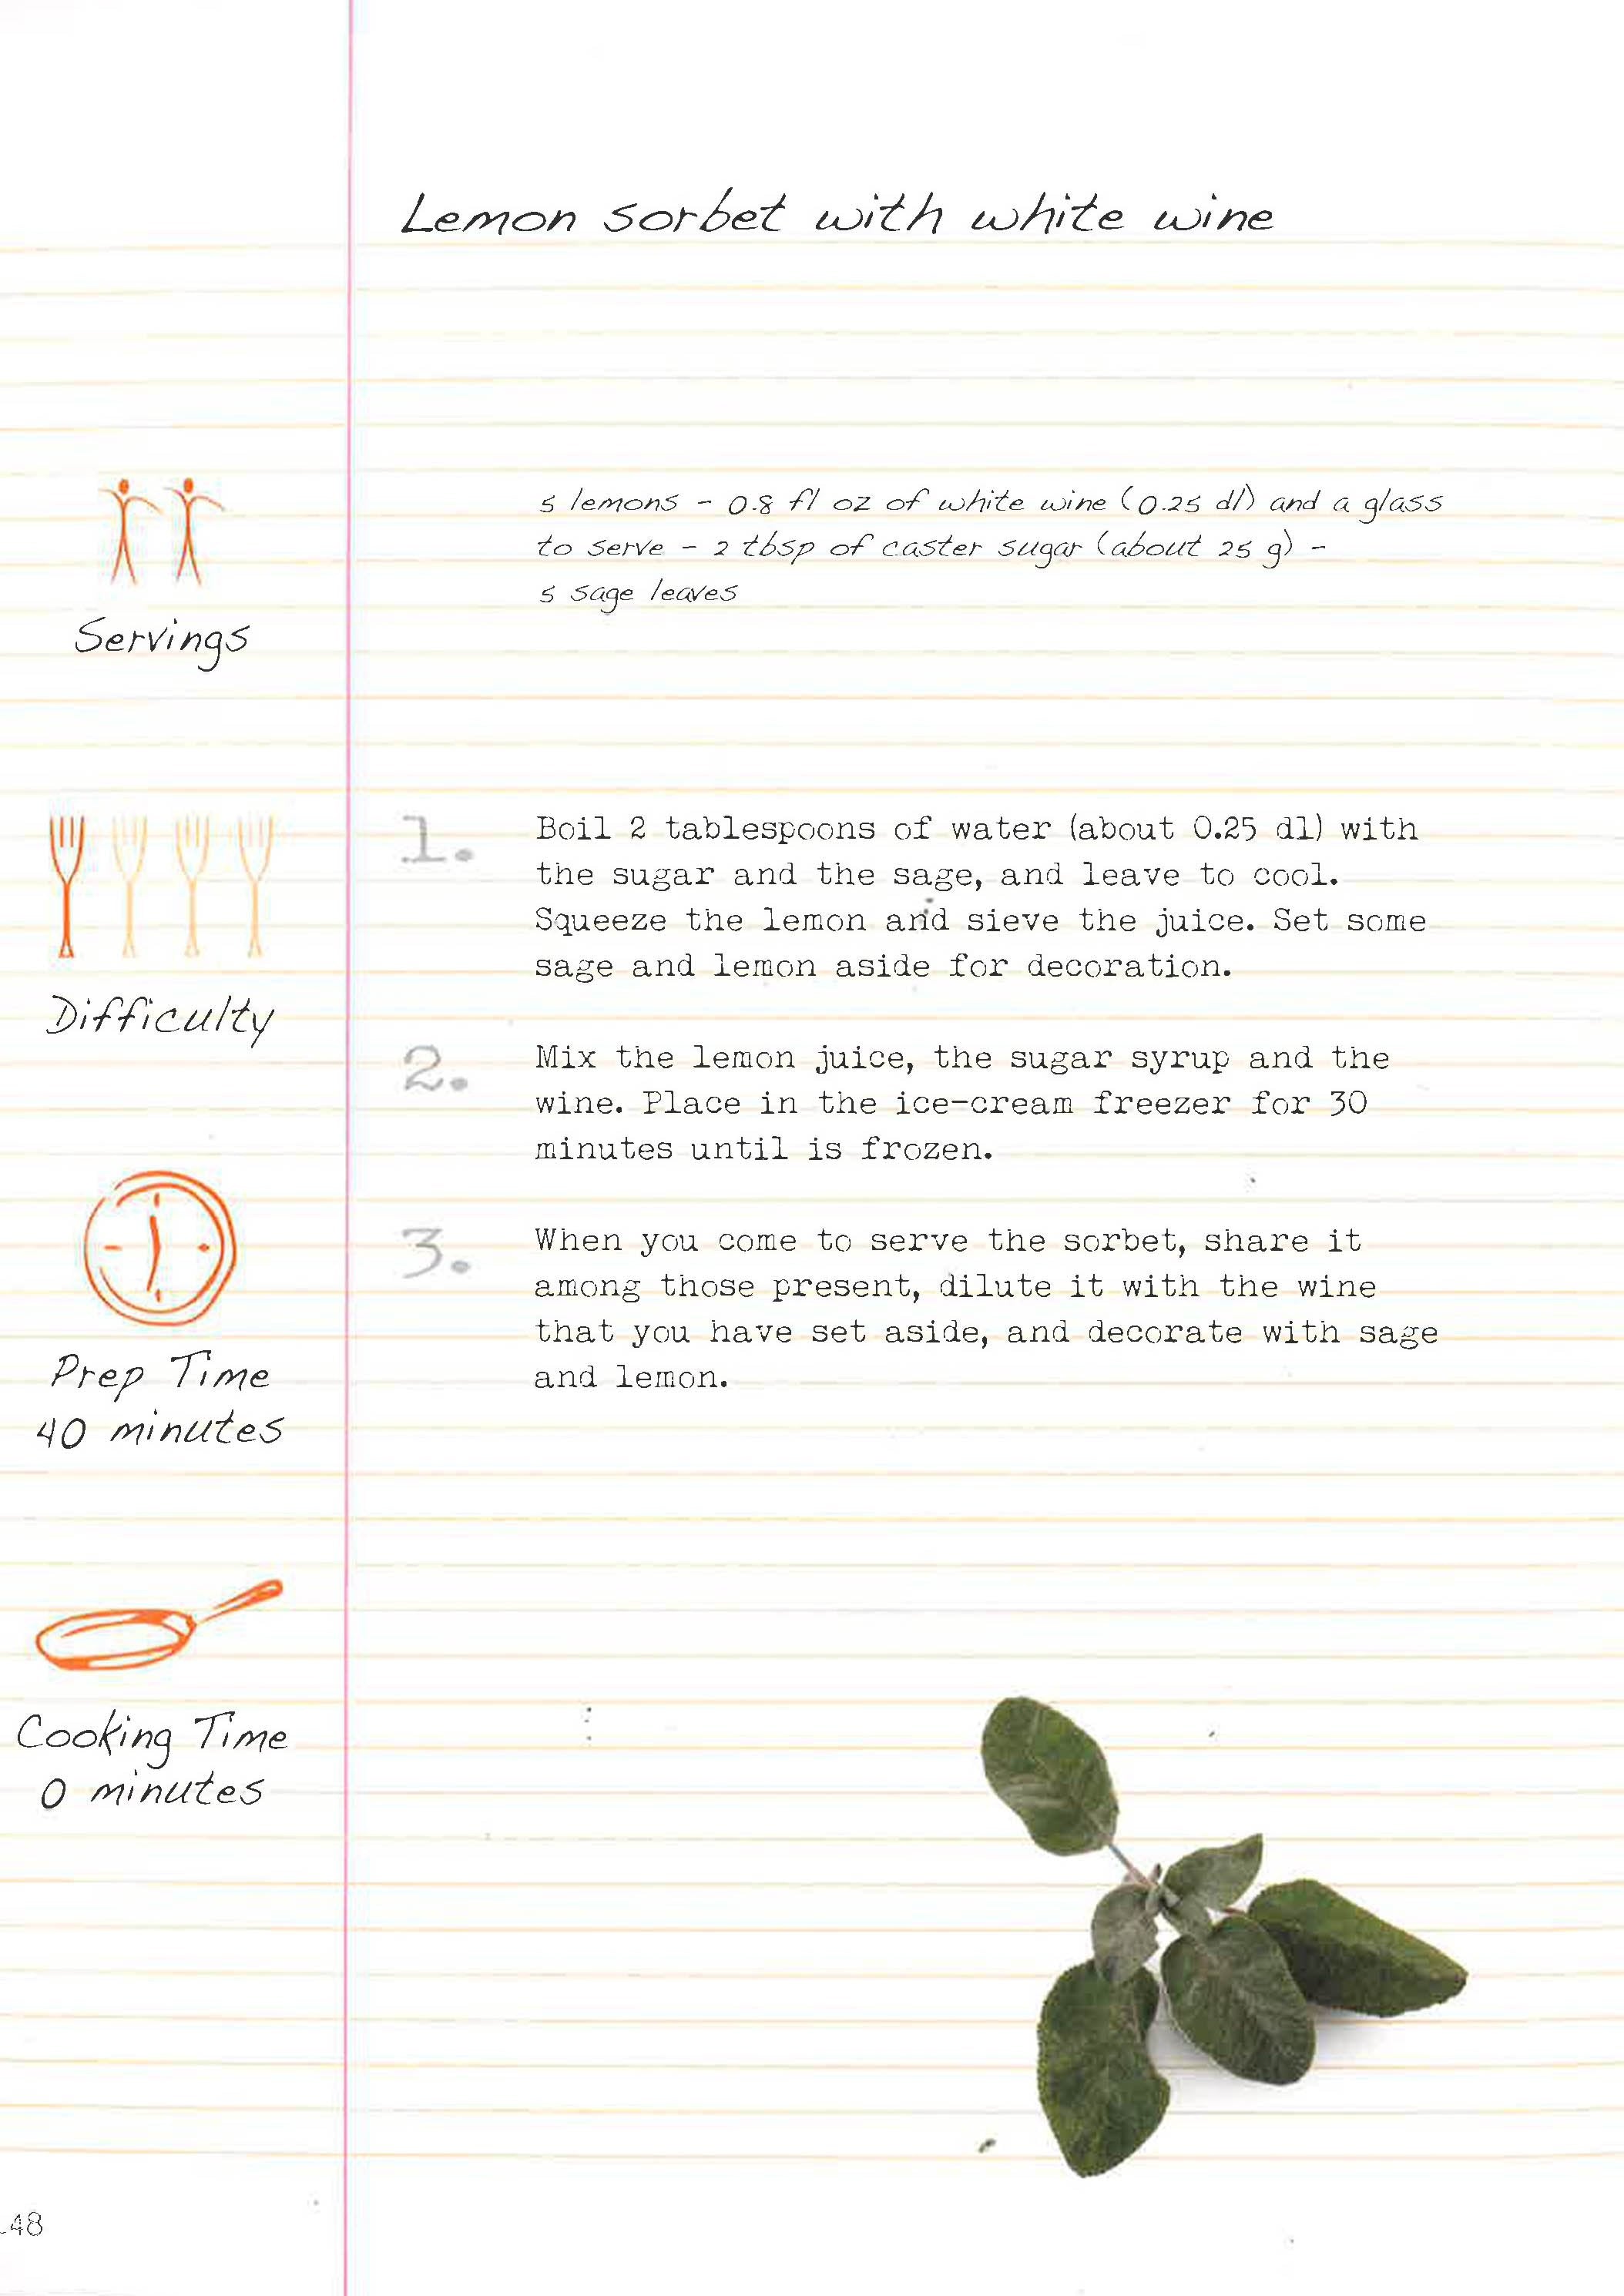 Lemon sorbet with white wine
5 lemons - 0.8 fl oz of white wine (0.25 dl) and a glass
to serve - 2 tbsp of caster sugar (about 25 g) -
5 sage leaves
Servings
Difficulty
Prep Time
40 minutes
Cooking Time
0 minutes
1. Boil 2 tablespoons of water (about 0.25 dl) with
the sugar and the sage, and leave to cool.
Squeeze the lemon and sieve the juice. Set some
sage and lemon aside for decoration.
2. Mix the lemon juice, the sugar syrup and the
wine. Place in the ice-cream freezer for 30
minutes until is frozen.
3. When you come to serve the sorbet, share it
among those present, dilute it with the wine
that you have set aside, and decorate with sage
and lemon.
48